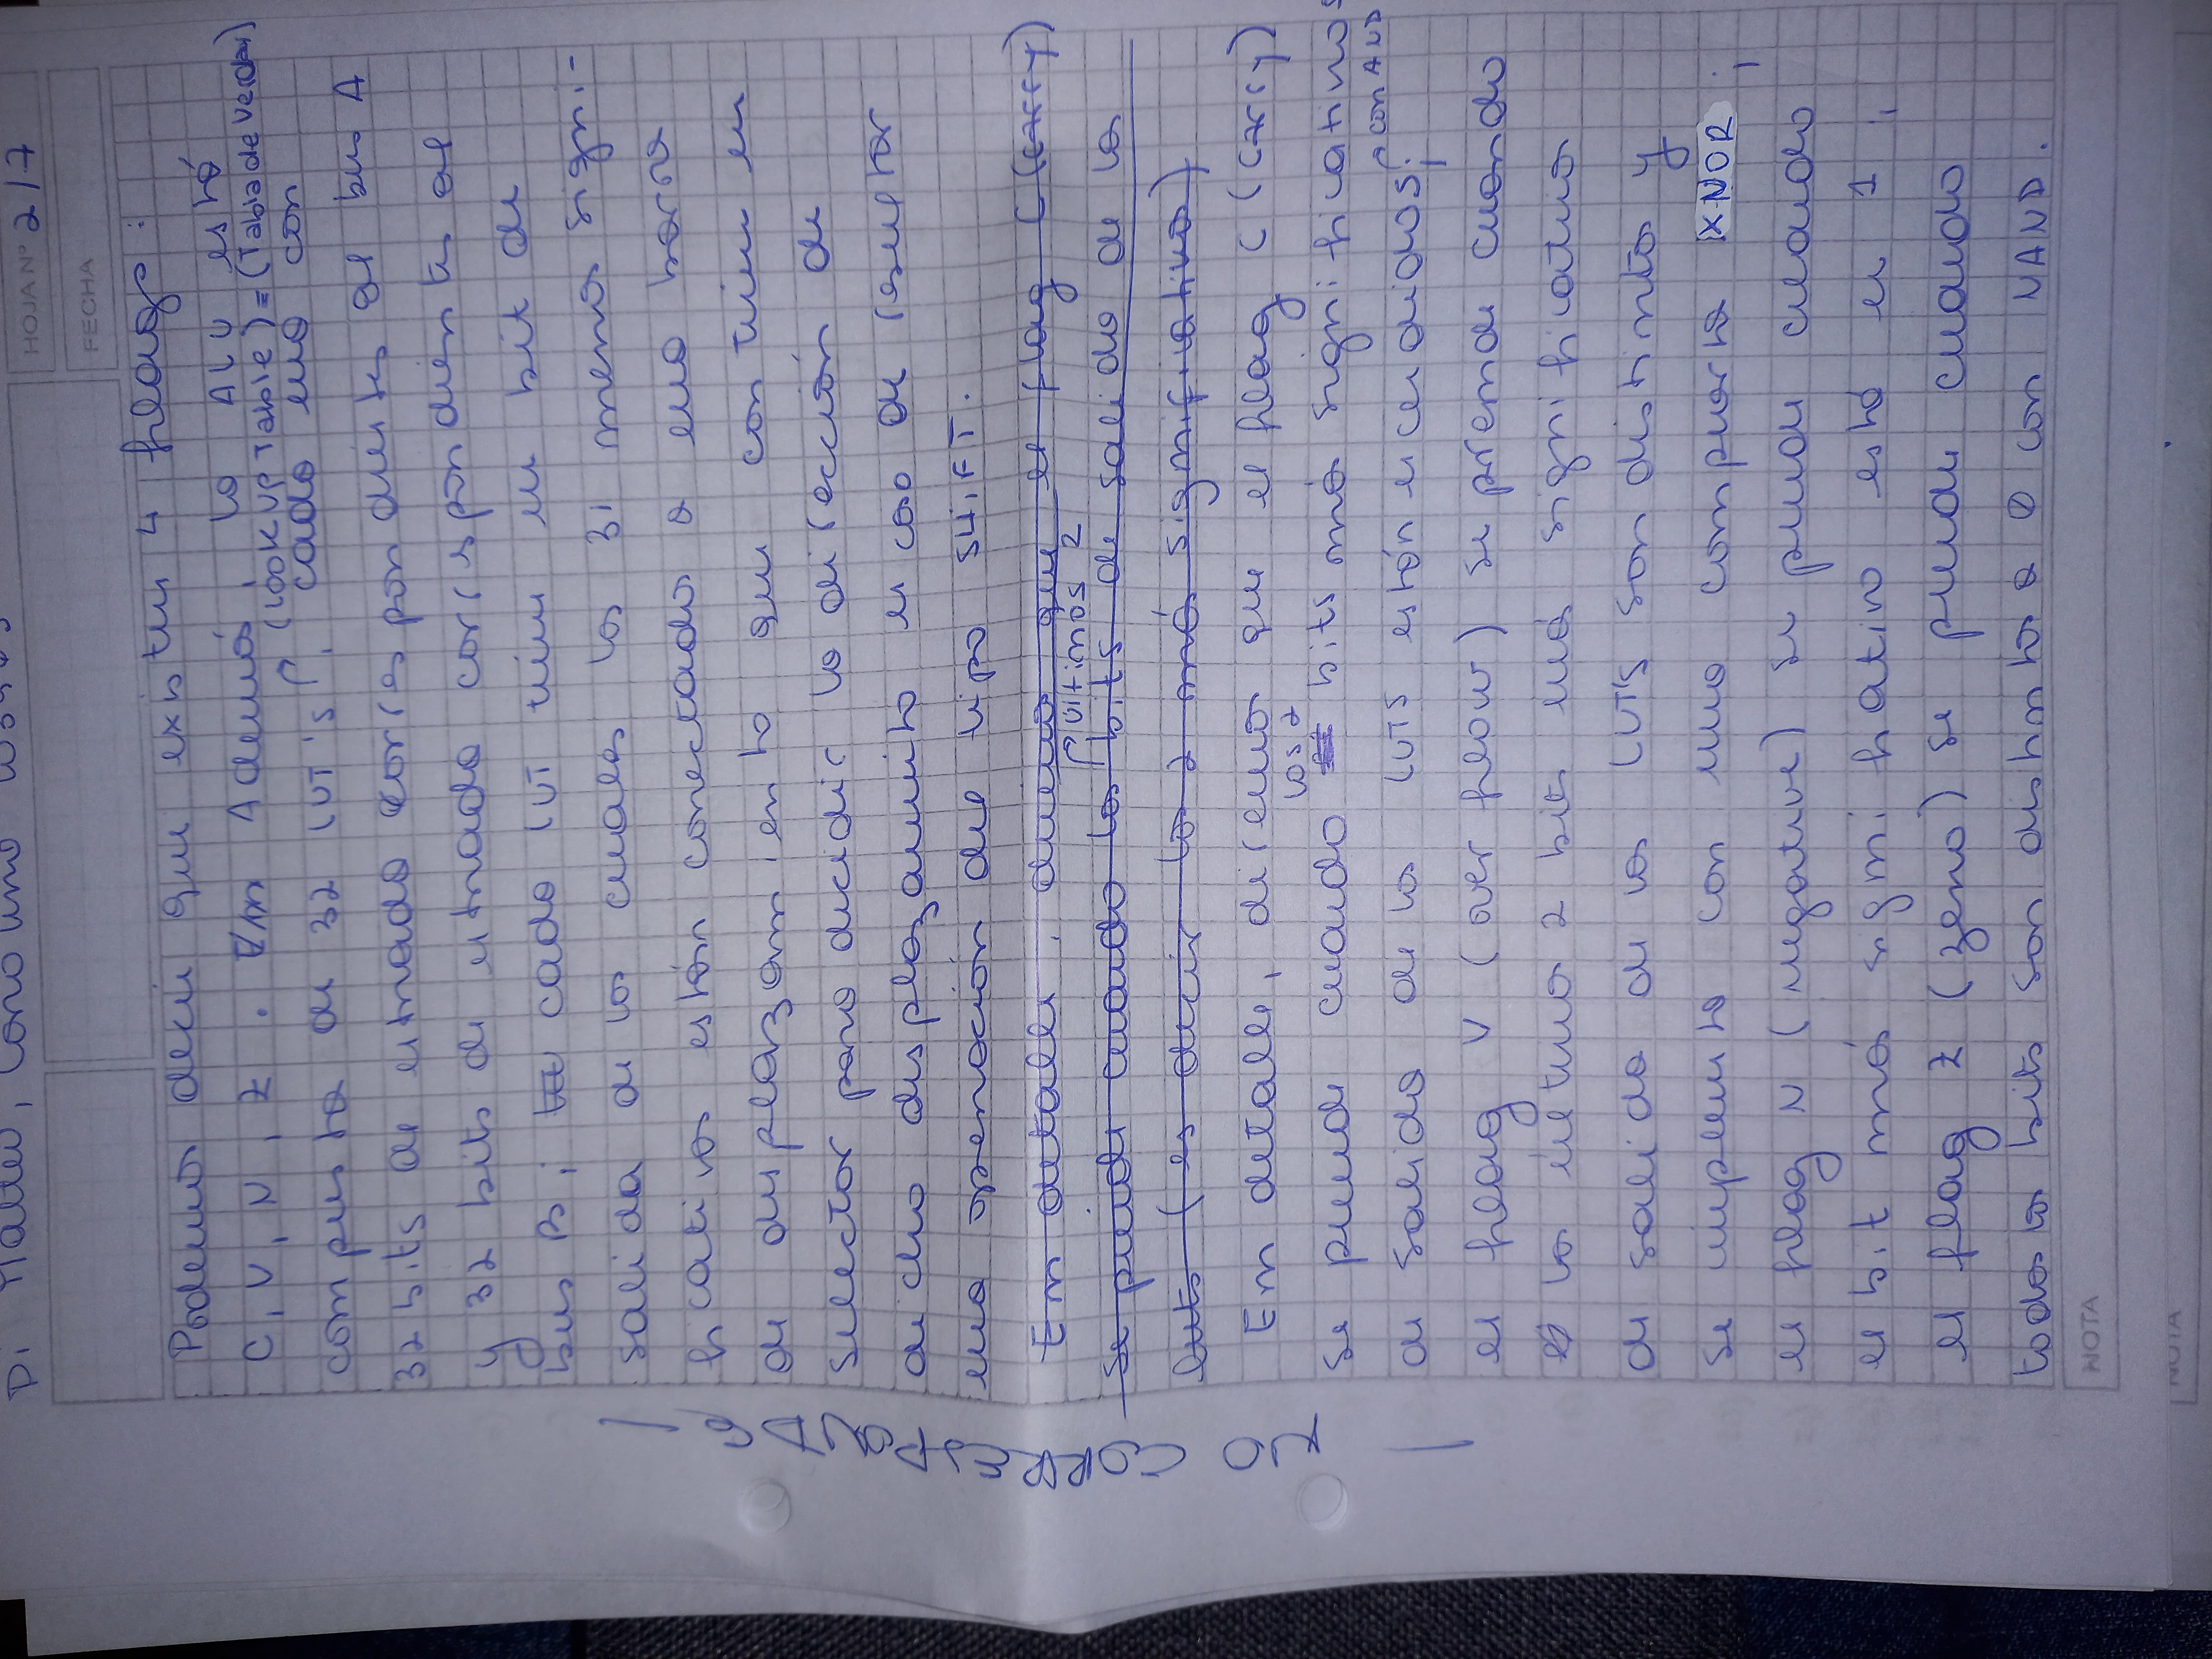 Di Matteo, Carolina
HOJA Nº 2/7
FECHA
Podemos decir que existen 4 flags:
C, V, N, Z. Además, la ALU está
(Look up Table) = (Tabla de Verdad)
compuesta de 32 LUT's, cada una con
32 bits de entrada correspondientes al bus A
y 32 bits de entrada correspondientes al
bus B; cada LUT tiene un bit de
salida de los cuales los 31 menos signi-
ficativos están conectados a una barra
de desplazamiento que contiene un
selector para decidir la dirección de
dicho desplazamiento en caso de resultar
una operación del tipo SHIFT.
En detalle, diremos que el flag C (carry)
últimos 2
se prende cuando los bits de salida de las
luts (es decir los 2 más significativos)
En detalle, diremos que el flag C (carry)
los 2
se prende cuando bits más significativos
con AND
de salida de las LUTS están encendidos;
el flag V (overflow) se prende cuando
los últimos 2 bits más significativos
de salida de las LUT'S son distintos y
se implementa con una compuerta XNOR;
el flag N (negative) se prende cuando
el bit más significativo está en 1,
el flag Z (zero) se prende cuando
todos los bits son distintos a 0 con NAND.
- NO CORRESPONDE -
NOTA
NOTA